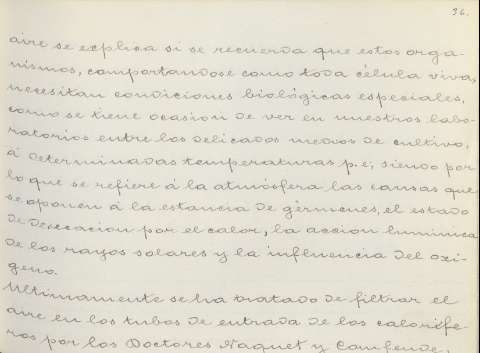 36.
aire se esplica si se recuerda que estos orga-
nismos, comportandose como toda célula viva,
necesitan condiciones biológicas especiales,
como se tiene ocasion de ver en nuestros labo-
ratorios entre los delicados medios de cultivo,
á determinadas temperaturas p.e; siendo por
lo que se refiere á la atmósfera las causas que
se oponen á la estancia de gérmenes, el estado
de desecacion por el calor, la accion luminica
de los rayos solares y la influencia del oxi-
geno.
Ultimamente se ha tratado de filtrar el
aire en los tubos de entrada de los calorife-
ros por los Doctores Naquet y